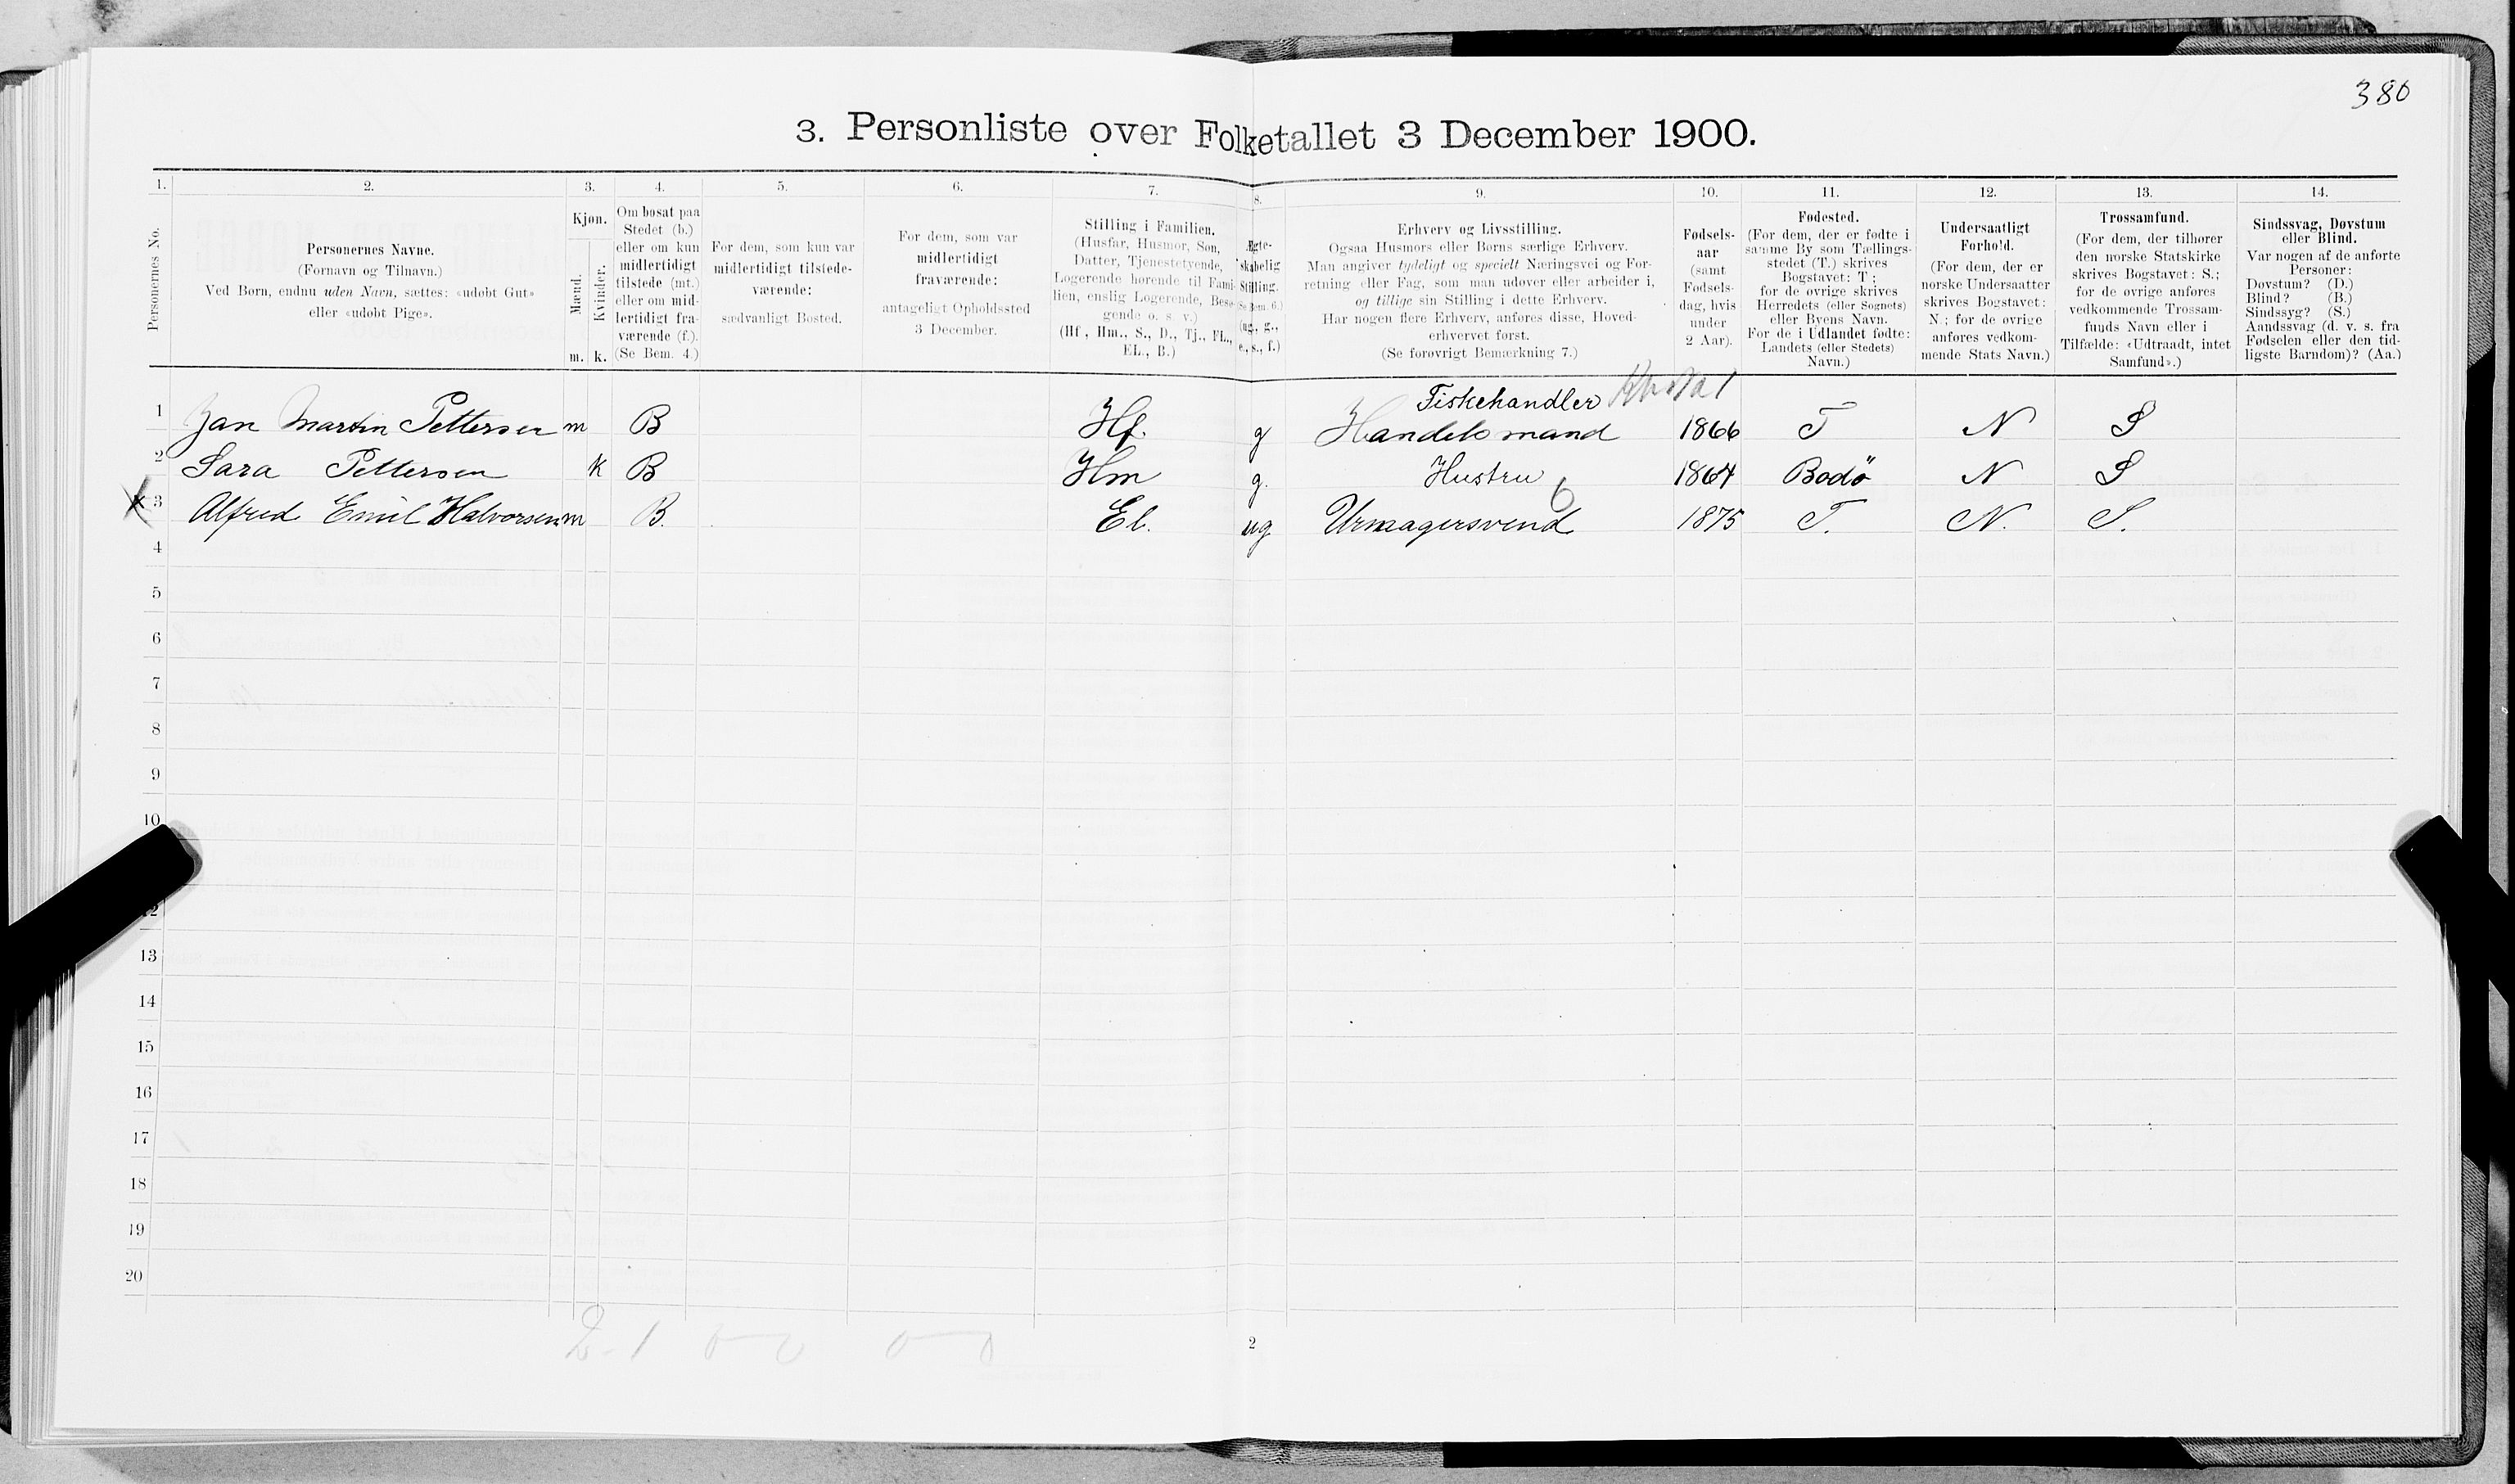 380
3. Personliste over Folketallet 3 December 1900.
1.
Personernes No.
2.
Personernes Navne.
(Fornavn og Tilnavn.)
Ved Børn, endnu uden Navn, sættes: «udøbt Gut»
eller «udøbt Pige».
3.
Kjøn.
Mænd.
Kvinder.
m. k.
4.
Om bosat paa
Stedet (b.)
eller om kun
midlertidigt
tilstede (mt.)
eller om mid-
lertidigt fra-
værende (f.).
(Se Bem. 4.)
5.
For dem, som kun var
midlertidigt tilstede-
værende:
sædvanligt Bosted.
6.
For dem, som var
midlertidigt
fraværende:
antageligt Opholdssted
3 December.
7.
Stilling i Familien.
(Husfar, Husmor, Søn,
Datter, Tjenestetyende,
Logerende hørende til Fami-
lien, enslig Logerende, Besø-
gende o. s. v.)
(Hf., Hm., S., D., Tj., FL.,
EL., B.)
8.
Ægte-
skabelig
Stilling.
(Se Bem. 6.)
(ug., g.,
e., s., f.)
9.
Erhverv og Livsstilling.
Ogsaa Husmors eller Børns særlige Erhverv.
Man angiver tydeligt og specielt Næringsvei og For-
retning eller Fag, som man udøver eller arbeider i,
og tillige sin Stilling i dette Erhverv.
Har nogen flere Erhverv, anføres disse, Hoved-
erhvervet først.
(Se forøvrigt Bemærkning 7.)
10.
Fødsels-
aar
(samt
Fødsels-
dag, hvis
under
2 Aar).
11.
Fødested.
(For dem, der er fødte i
samme By som Tællings-
stedet (T.) skrives
Bogstavet: T;
for de øvrige skrives
Herredets (eller Sognets)
eller Byens Navn.
For de i Udlandet fødte:
Landets (eller Stedets)
Navn.)
12.
Undersaatligt
Forhold.
(For dem, der er
norske Undersaatter
skrives Bogstavet:
N.; for de øvrige
anføres vedkom-
mende Stats Navn.)
13.
Trossamfund.
(For dem, der tilhører
den norske Statskirke
skrives Bogstavet: S.;
for de øvrige anføres
vedkommende Trossam-
funds Navn eller i
Tilfælde: «Udtraadt, intet
Samfund».)
14.
Sindssvag, Døvstum
eller Blind.
Var nogen af de anførte
Personer:
Døvstum? (D.)
Blind? (B.)
Sindssyg? (S.)
Aandssvag (d. v. s. fra
Fødselen eller den tid-
ligste Barndom)? (Aa.)
Fiskehandler
1 Jan Martin Pettersen m B Hf. g Handelsmand 1866 T N S
2 Sara Pettersen k B Hm g. Hustru 1864 Bodö N S
x 3 Alfred Emil Halvorsen m B. El. ug Urmagersvend 1875 T. N. S.
4
5
6
7
8
9
10
12
13
14
15
16
17
18
19
20
2-1 0 0 0 0
2